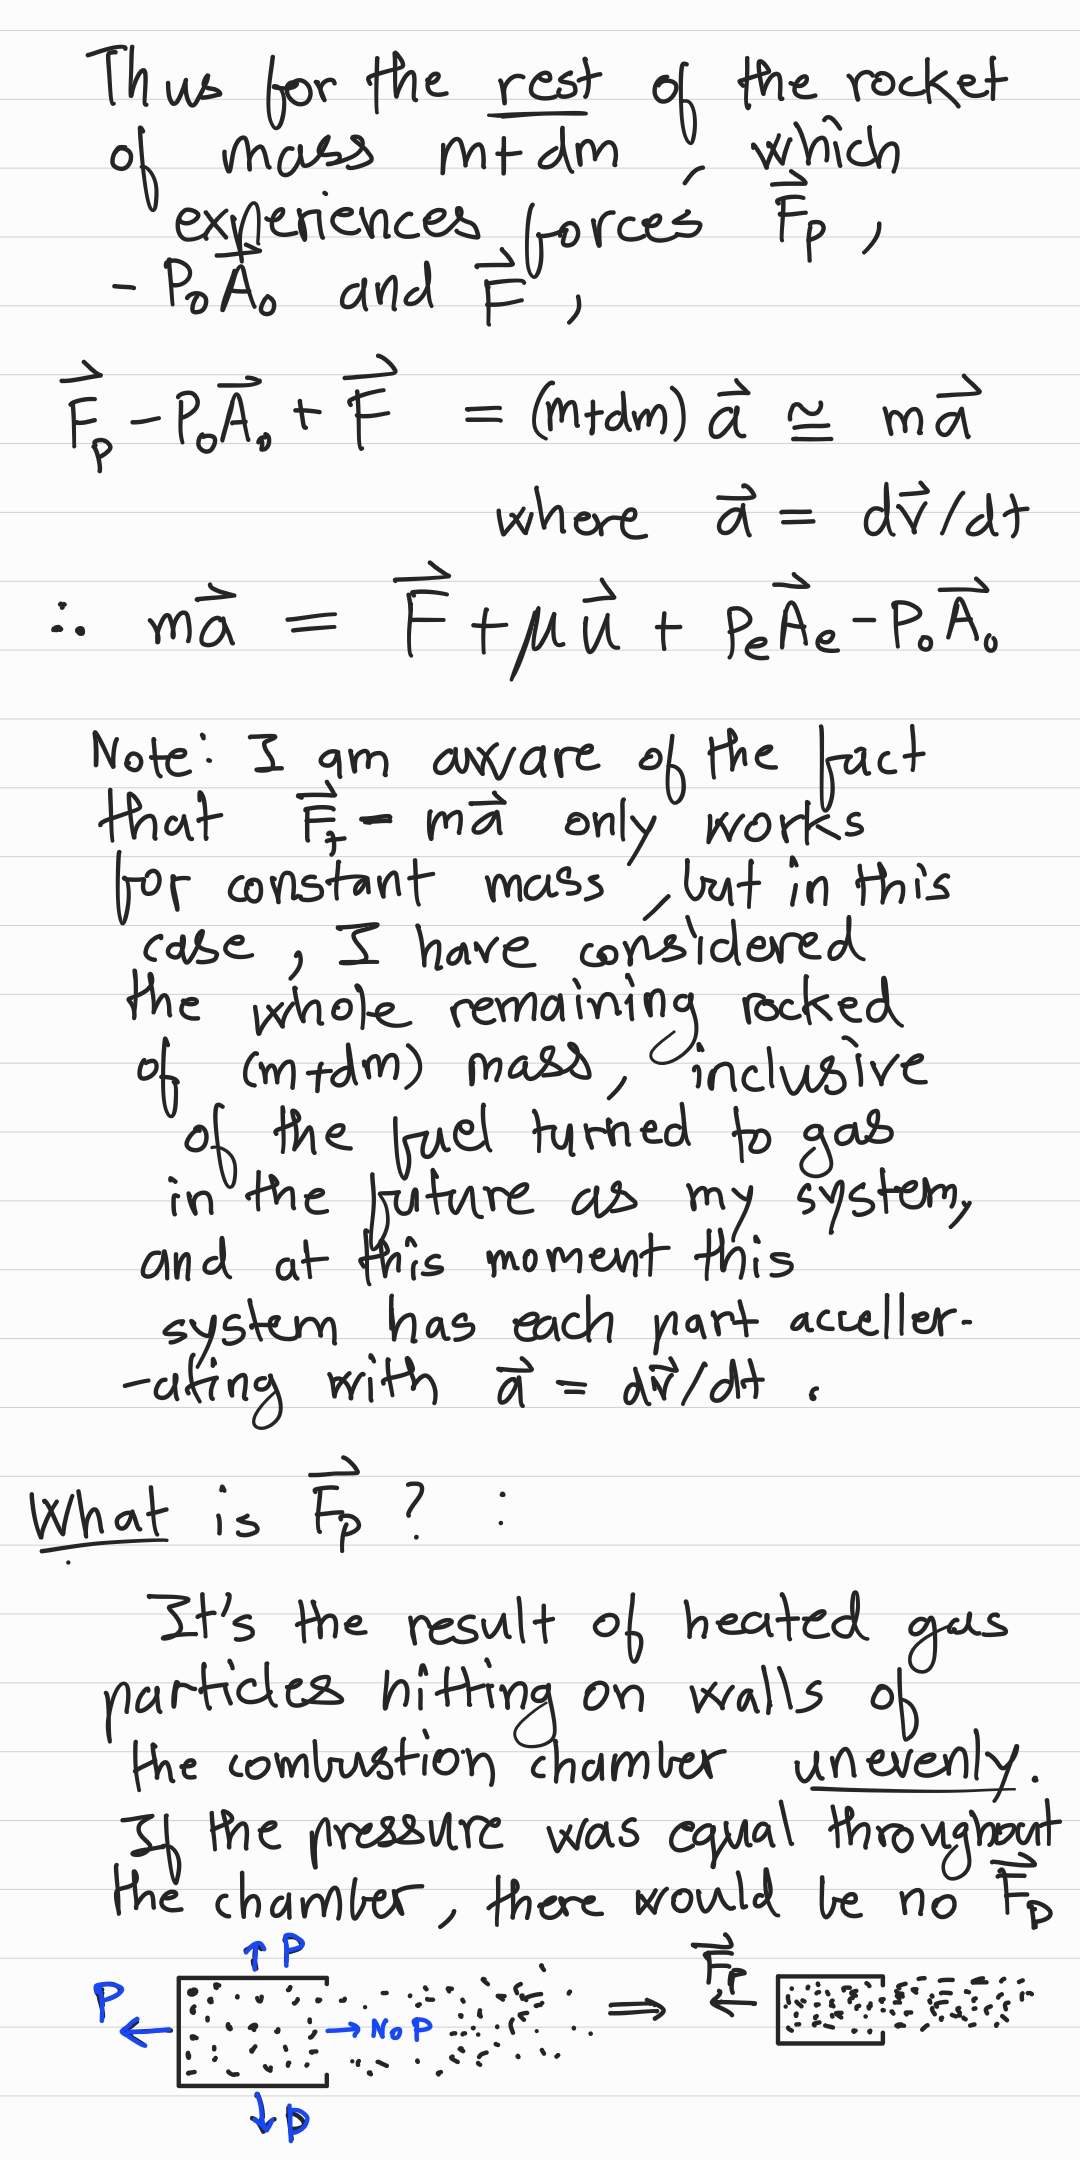 Thus for the rest of the rocket
of mass m+dm, which
experiences forces F⃗p,
- P₀A⃗₀ and F⃗,
F⃗p - P₀A⃗₀ + F⃗ = (m+dm) a⃗ ≅ ma⃗
where a⃗ = dv⃗/dt
∴ ma⃗ = F⃗ + μu⃗ + PₑA⃗ₑ - P₀A⃗₀
Note: I am aware of the fact
that F⃗ₜ = ma⃗ only works
for constant mass, but in this
case, I have considered
the whole remaining rocked
of (m+dm) mass, inclusive
of the fuel turned to gas
in the future as my system,
and at this moment this
system has each part acceller-
-ating with a⃗ = dv⃗/dt.
What is F⃗p? :
It's the result of heated gas
particles hitting on walls of
the combustion chamber unevenly.
If the pressure was equal throughout
the chamber, there would be no F⃗p
↑ P
P
← → No P ⇒ F⃗p ←
↓ P